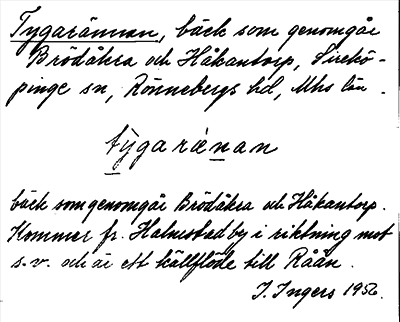 Tygarännan, bäck som genomgår
Brödåkra och Håkantorp, Sirekö-
pinge sn, Rönnebergs hd, Mhs län.
tỳgaränan
bäck som genomgår Brödåkra och Håkantorp.
Kommer fr. Halmstad by i riktning mot
s.v. och är ett källflöde till Råån.
I. Ingers 1956.